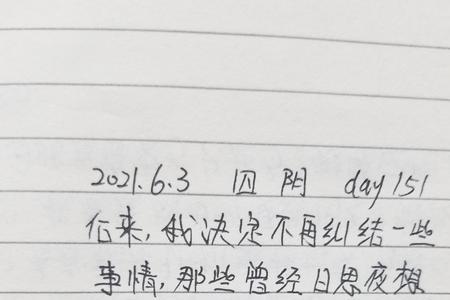 2021.6.3 四 阴 day 151
后来,我决定不再纠结一些
事情,那些曾经日思夜想